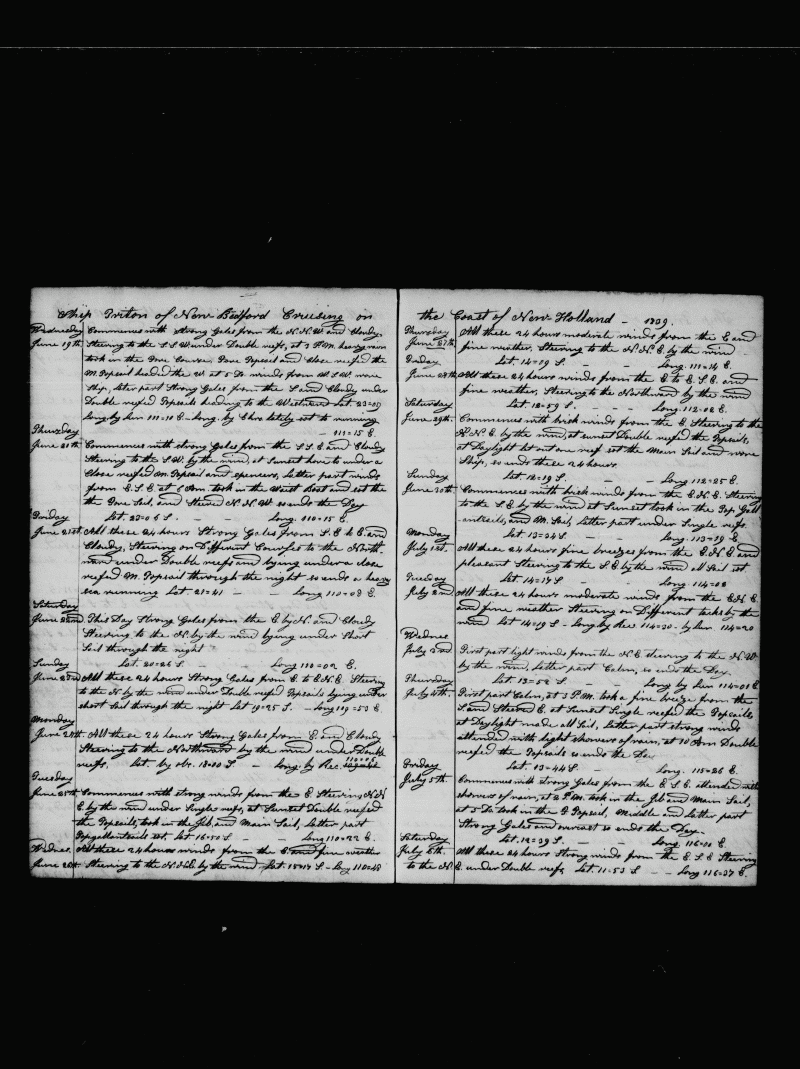 Ship Triton of New Bedford Cruising on
Wednesday Commences with Strong Gales from the N.N.W and Cloudy
June 19th Steering to the S.S.W under Double reefs, at 3 P.M. heavy rain
took in the Fore Course Fore Topsail and Close reefed the
M. Topsail headed the W at 5 Do. winds from W.S.W. wore
Ship, later part Strong Gales from the S and Cloudy under
Double reefed Topsails heading to the Westward Lat. 23=09
Long by Lun 111=10 E - Long. by Chro lately set to running
Thursday - 111=15 E.
June 20th Commences with strong Gales from the S.S.E and Cloudy
Steering to the S.W. by the wind, at Sunset hove to under a
Close reefed M. Topsail and spencers, Latter part winds
from E.S.E at 8 Am. took in the Waist Boat and set the
the Fore Sail, and Steered N.N.W. so ends the Day
Friday Lat. 23=06 S. - - Long. 110=15 E.
June 21st. All these 24 hours Strong Gales from S.E to E. and
Cloudy, Steering on Different Courses to the North-
ward under Double reefs and lying under a close
reefed M. Topsail through the night so ends a heavy
sea running Lat 21=41 - - Long 110=08 E.
Saturday
June 22nd This Day Strong Gales from the E. by N. and Cloudy
Steering to the N. by the wind lying under Short
Sail through the night
Sunday Lat. 20=26 S. - Long 110=02 E.
June 23rd All these 24 hours Strong Gales from E. to E.N.E. Steering
to the N by the wind under Double reefed Topsails lying under
short Sail through the night Lat 19=25 S. - Long 109=53 E.
Monday
June 24th All these 24 hours Strong Gales from E. and Cloudy
Steering to the Northward by the wind under Double
reefs, Lat. by obs. 18=00 S - Long. by Rec.
Tuesday
June 25th Commences with strong winds from the E Steering N.N
E. by the wind under Single reefs, at Sunset Double reefed
the Topsails, took in the Jib, and Main Sail, Latter part
Topgallantsails set. Lat 16=50 S - Long 110=22 E.
Wednes. All these 24 hours winds from the E. and fine weather
June 26th. Steering to the N.N.E. by the wind Lat. 15=17 S - Long 110=48
the Coast of New Holland - 1839.
Thursday All these 24 hours moderate winds from the E and
June 27th. fine weather, Steering to the N.N.E. by the wind
Friday Lat 14=09 S. - - Long. 111=14 E.
June 28th All these 24 hours winds from the E. to E.S.E. and
fine weather, Steering to the Northward by the wind
Saturday Lat. 12=59 S. - - Long. 112=02 E.
June 29th. Commences with brisk winds from the E. Steering to the
N.N.E. by the wind, at sunset Double reefed the Topsails,
at Daylight let out one reef set the Main Sail and wore
Ship, so ends these 24 hours
Sunday Lat. 12=19 S. - - Long 112=25 E.
June 30th. Commences with brisk winds from the E.N.E. Steering
to the S.E. by the wind at Sunset took in the Top Gall-
antsails, and M. Sail, Latter part under Single reefs.
Monday Lat. 13=24 S. - Long. 113=19 E.
July 1st. All these 24 hours fine breezes from the E.N.E and
pleasant Steering to the S.E. by the wind all Sail set
Tuesday Lat 14=17 S - Long. 114=02
July 2nd All these 24 hours moderate winds from the E.N.E
and fine weather Steering on Different tacks by the
wind Lat 14=19 S - Long by Rec 114=20 - by Lun 114=20
Wednes
July 3rd First part light winds from the N.E steering to the N.W
by the wind, Latter part Calm, so ends the Day.
Thursday Lat. 13=52 S. - Long by Lun 114=01 E
July 4th. First part Calm, at 3 P.M. took a fine breeze from the
S. and Steered E. at Sunset Single reefed the Topsails,
at Daylight made all Sail, Latter part strong winds
attended with light showers of rain, at 10 Am Double
reefed the Topsails so ends the Day
Friday Lat. 13=44 S. - Long. 115=26 E.
July 5th. Commences with strong Gales from the E.S.E. attended with
showers of rain, at 2 P.M. took in the Jib and Main Sail,
at 5 Do took in the Topsail, Middle and Latter part
Strong Gales and overcast so ends the Day.
Saturday Lat. 12=39 S. - Long. 116=10 E.
July 6th. All these 24 hours Strong winds from the E.S.E Steering
to the N.E. under Double reefs Lat. 11=53 S. - - Long 116=37 E.